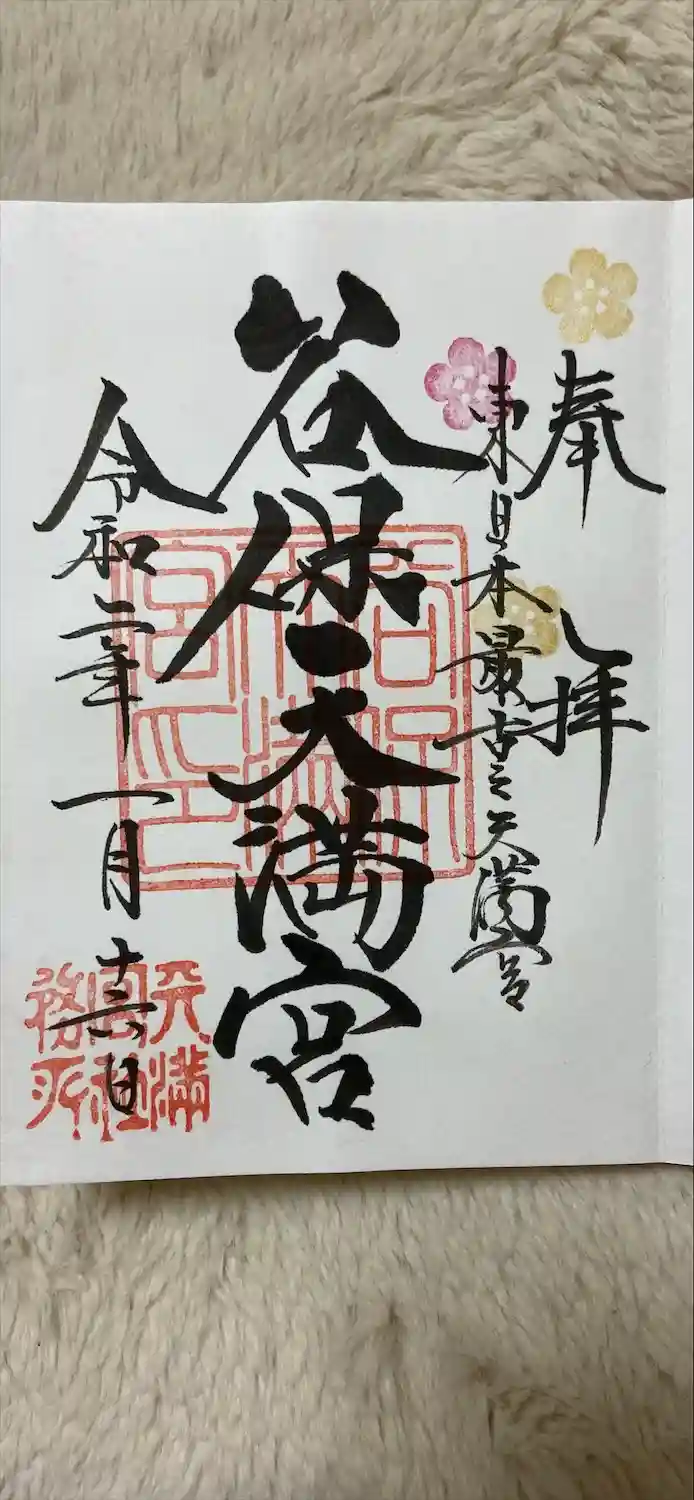 奉拝
東日本最古之天満宮
谷保天満宮
令和二年一月十六日
谷保天満宮印
天満宮社務所